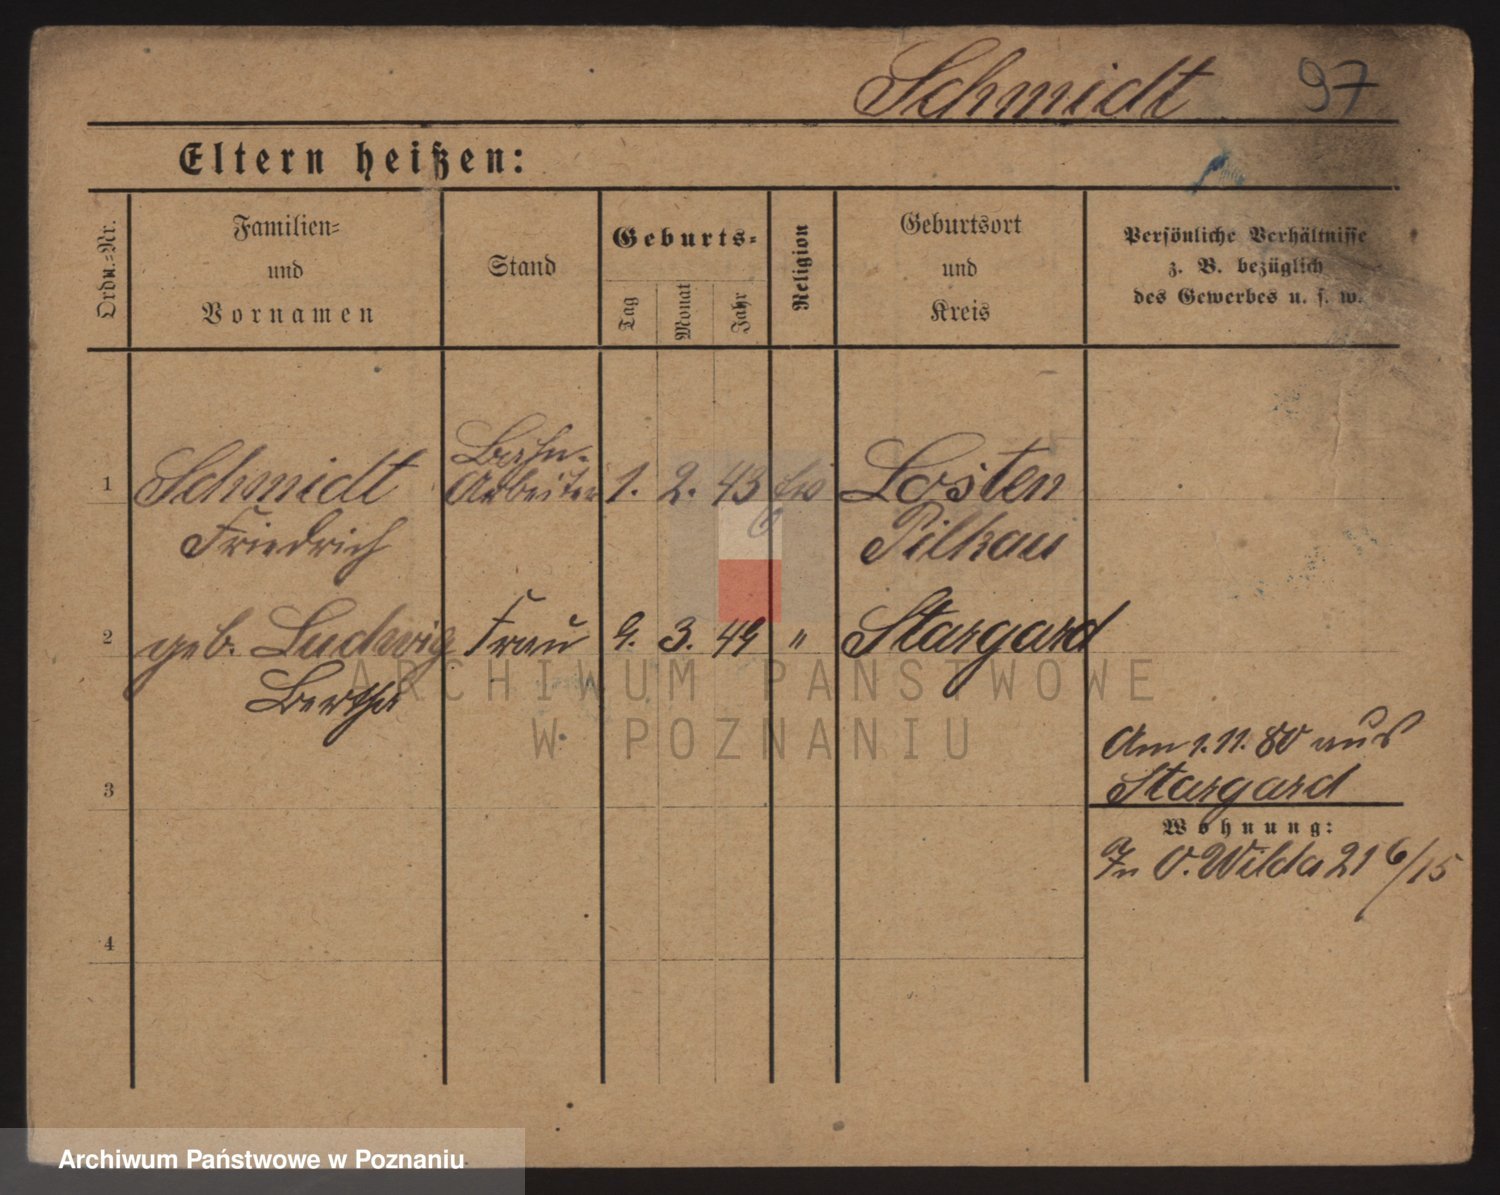 Schmidt 97
Eltern heißen:
Ordn.-Nr.
Familien-
und
Vornamen
Stand
Geburts-
Tag
Monat
Jahr
Religion
Geburtsort
und
Kreis
Persönliche Verhältnisse
z. B. bezüglich
des Gewerbes u. s. w.
1 Schmidt Bahn-
Arbeiter 1. 2. 43 Losten
Friedrich Pilkau
2 geb. Ludwig Frau 9. 3. 49 " Stargard
Bertha
ARCHIWUM PAŃSTWOWE
W POZNANIU
Am 1.11.80 aus
3 Stargard
Wohnung:
O. Wilda 21 6/15
4
Archiwum Państwowe w Poznaniu